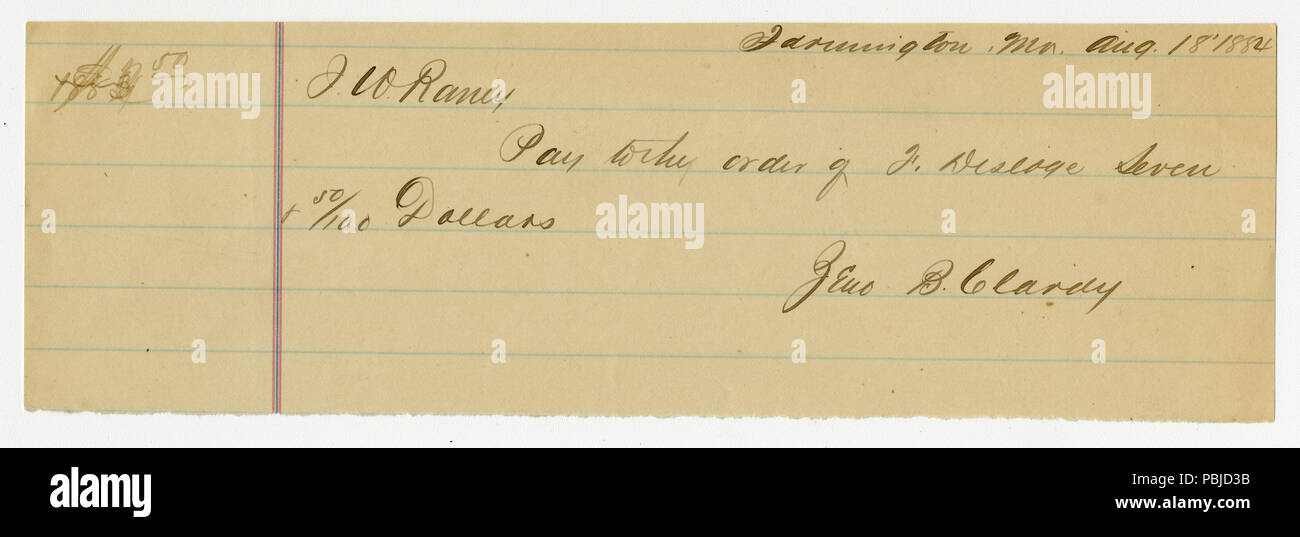 Farmington, Mo. Aug. 18' 1884
50
J. W. Raney
Pay to the order of F. Desloge Seven
& 50/100 Dollars
Zeno B. Clardy
a alamy
a a a
a a a a
alamy
PBJD3B
www.alamy.com